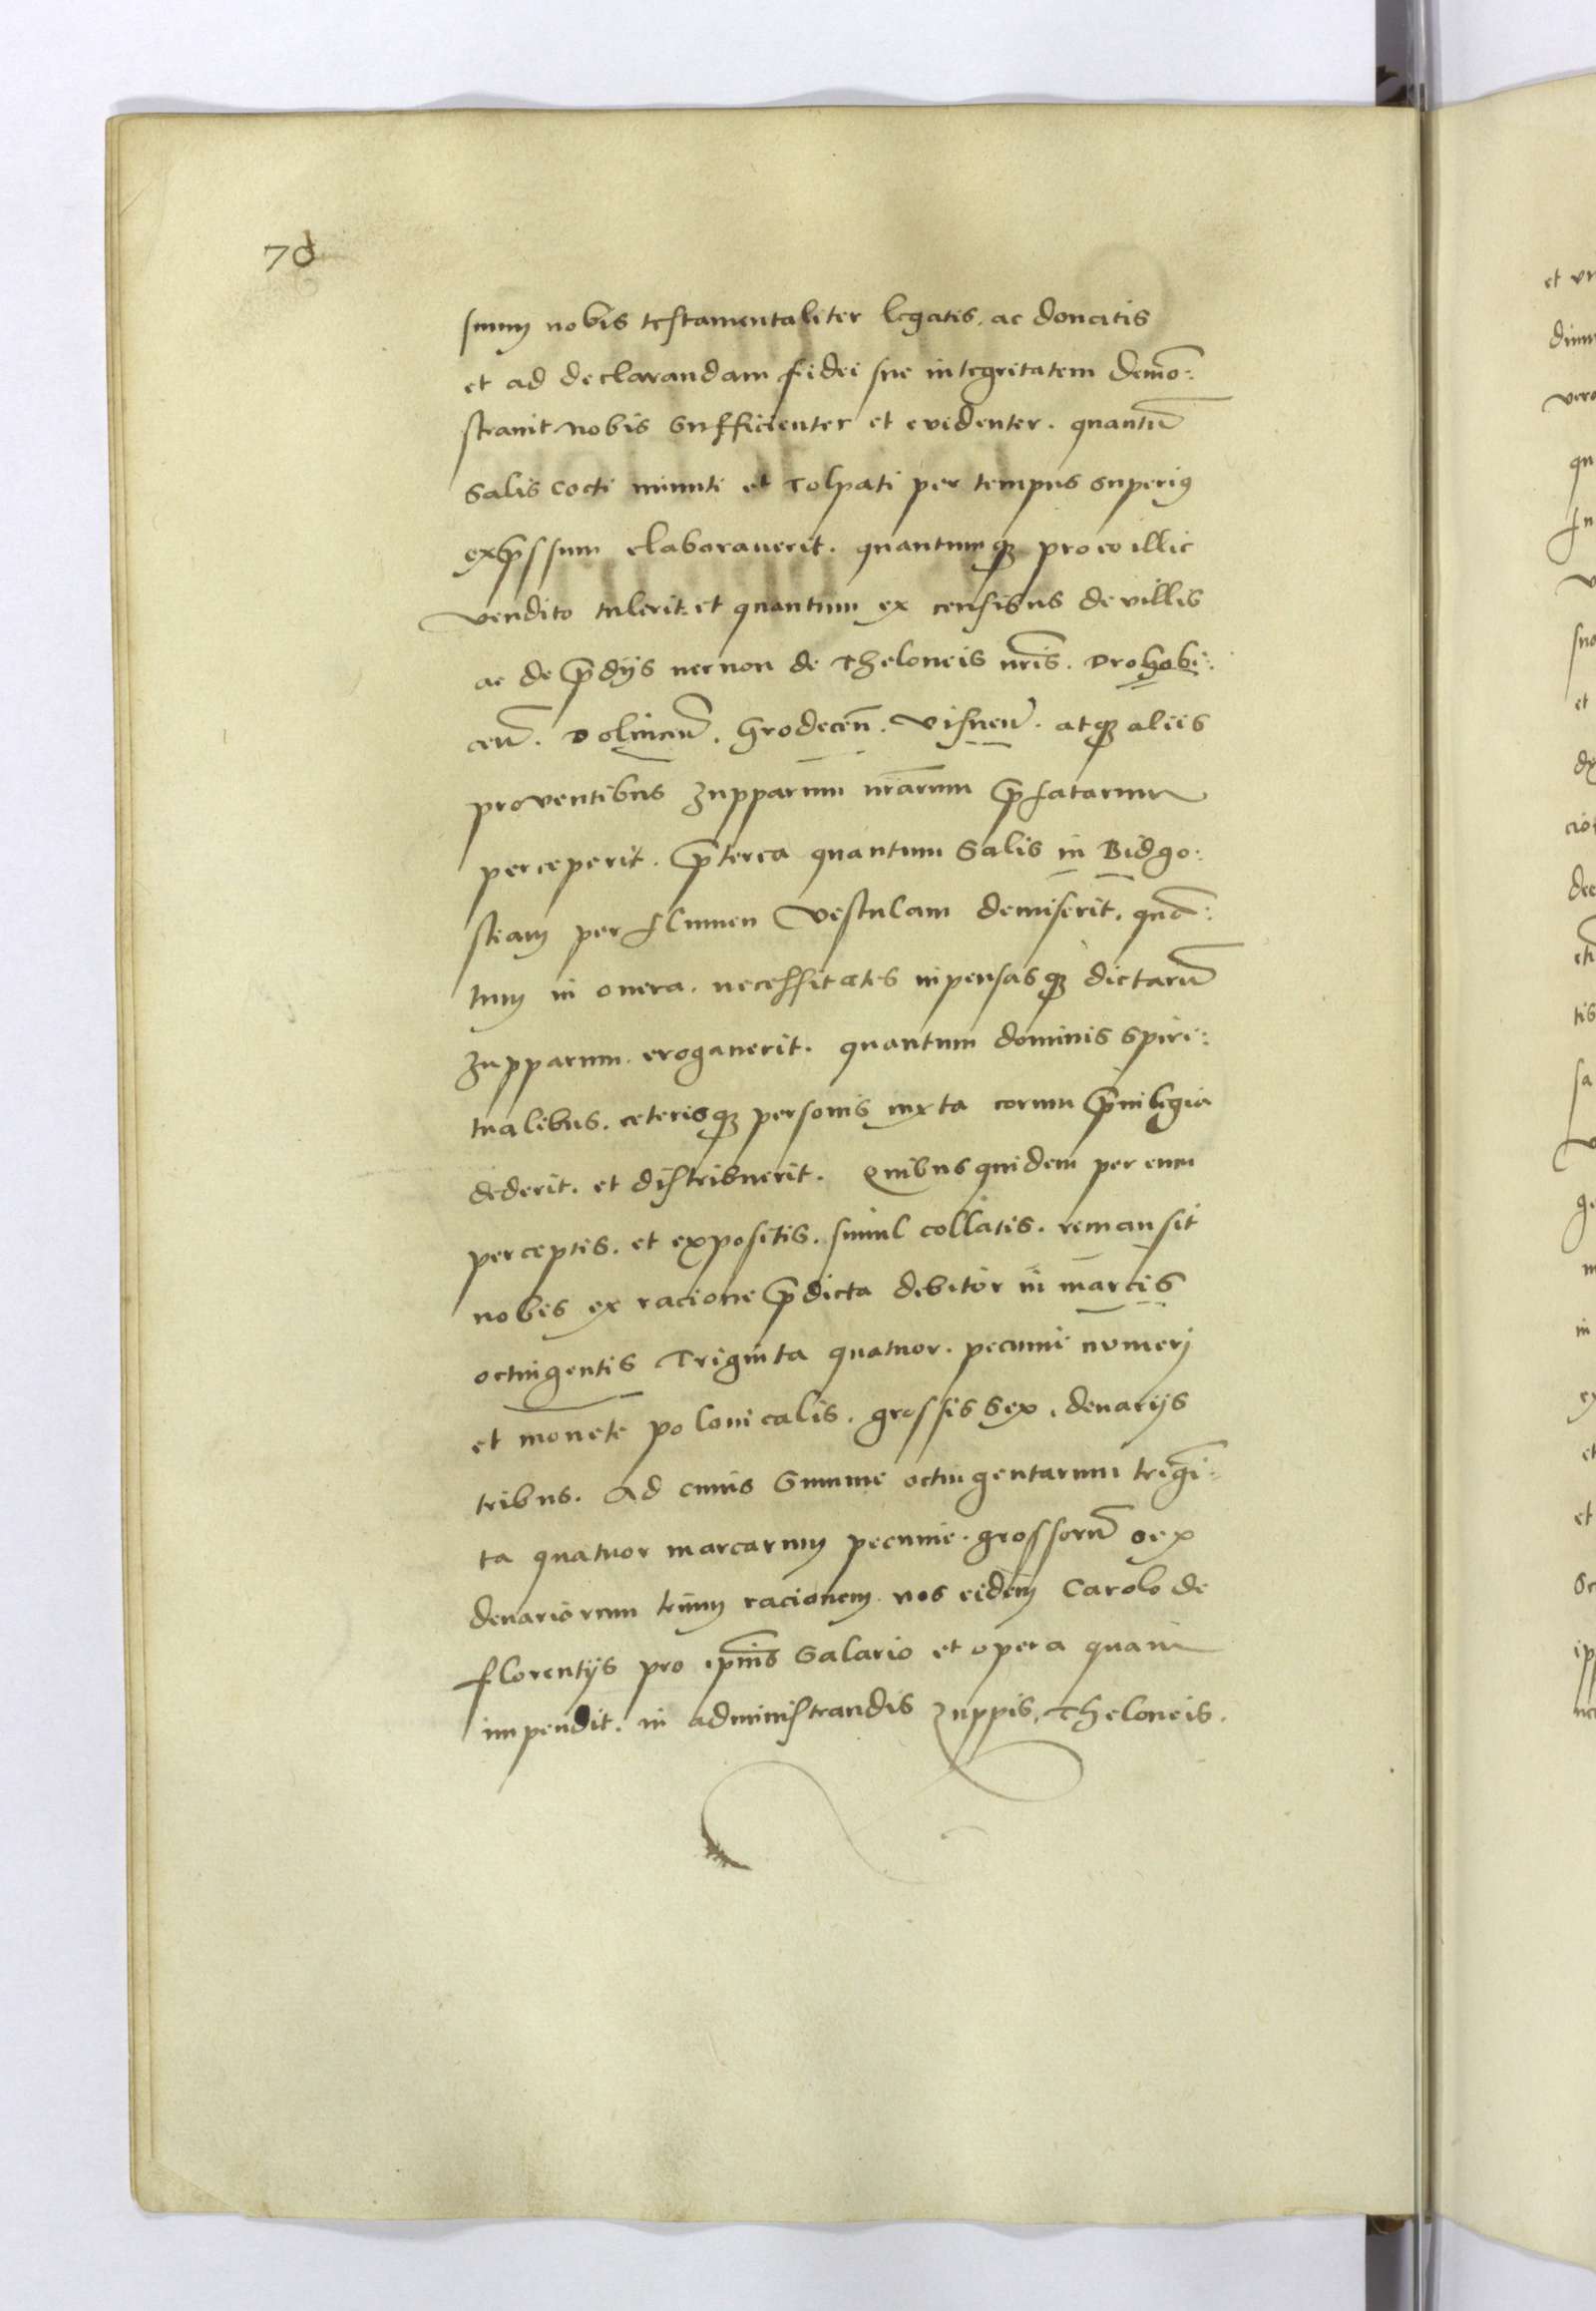 70
suum nobis testamentaliter legatis. ac donatis
et ad declarandam fidei sue integritatem demō:
strauit nobis sufficienter et evidenter. quantū
Salis cocti minuti et Tolpati per tempus superiꝰ
exp̄ssum elaborauerit. quantumqꝫ pro eo illic
vendito tulerit. et quantum ex censibus de villis
ac de p̄dijs necnon de Theloneis nr̄is. Drohobi:
ceñ. Dolinceñ. Grodeceñ. Visneñ. atqꝫ aliis
proventibus zupparum nr̄arum p̄fatarum
perceperit. p̄terea quantum Salis in Bidgo:
stiam per flumen Vestulam demiserit. quā:
tum in onera. necessitates inpensasqꝫ dictarū
zupparum. erogauerit. quantum dominis spiri:
tualibus. ceterisqꝫ personis iuxta eorum p̄uilegia
dederit. et distribuerit. Quibus quidem per eum
perceptis. et expositis. simul collatis. remansit
nobis ex racione p̄dicta debitor in marcis
octingentis Triginta quatuor. pecunie numeri
et monete polonicalis. grossis sex. denarijs
tribus. Ad cuius Summe octingentarum trigī:
ta quatuor marcarum pecunie. grossorū sex
denariorum trium racionem. nos eidem Carolo de
florentijs pro ip̄ius Salario et opera quam
impendit. in administrandis zuppis, Theloneis.